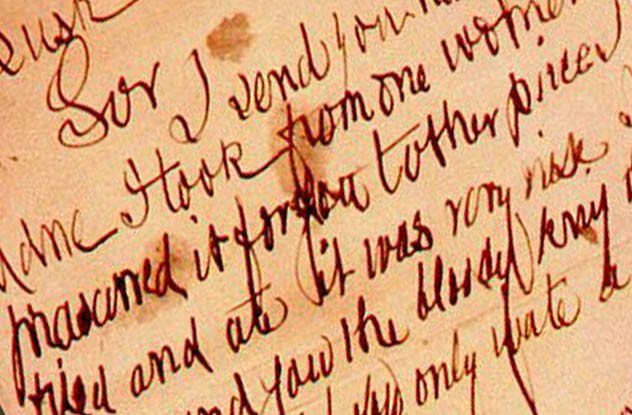 Lusk
Sor I send you
I took from one women
prasarved it for you tother piece I
fried and ate it was very nise I
send you the bloody knif
you only wate a